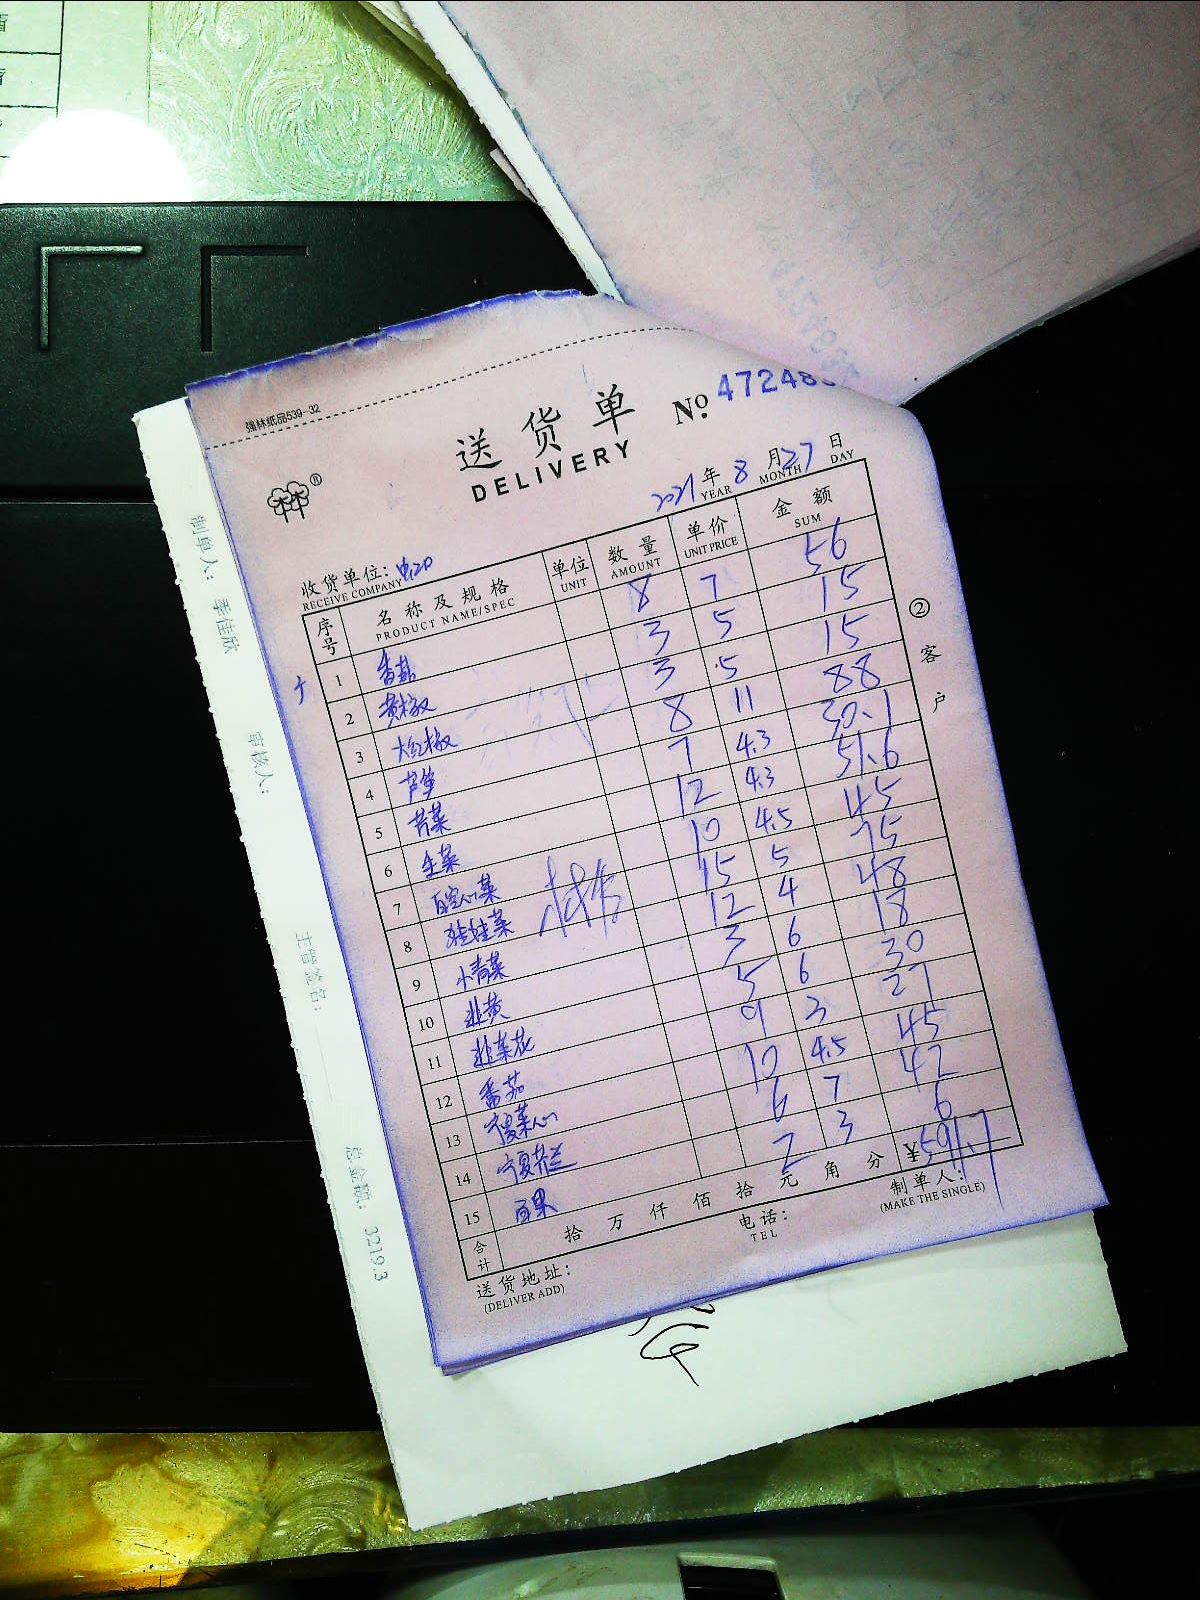 强林纸品539-32
送货单
DELIVERY
No. 47248
2021年 8月 27日
YEAR MONTH DAY
收货单位:
RECEIVE COMPANY
序号 名称及规格 单位 数量 单价 金额
PRODUCT NAME/SPEC UNIT AMOUNT UNIT PRICE SUM
1 香菇 8 7 56
2 黄椒 3 5 15
3 大红椒 3 5 15
4 芦笋 8 11 88
5 苦菜 7 4.3 30.1
6 生菜 12 4.3 51.6
7 10 4.5 45
8 娃娃菜 15 5 75
9 小青菜 12 4 48
10 韭黄 3 6 18
11 韭菜花 5 6 30
12 番茄 9 3 27
13 宁夏菜心 10 4.5 45
14 宁夏芥兰 6 7 42
15 百果 2 3 6
合计 拾 万 仟 佰 拾 元 角 分 ¥591.7
送货地址:
(DELIVER ADD)
电话:
TEL
制单人:
(MAKE THE SINGLE)
②客户
制单人: 李佳欣
审核人:
主管签名:
总金额: 3219.3